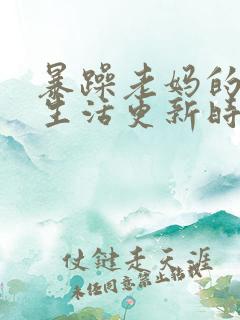 暴躁老妈的
生活更新时
仗键走天涯
未经同意禁止转载